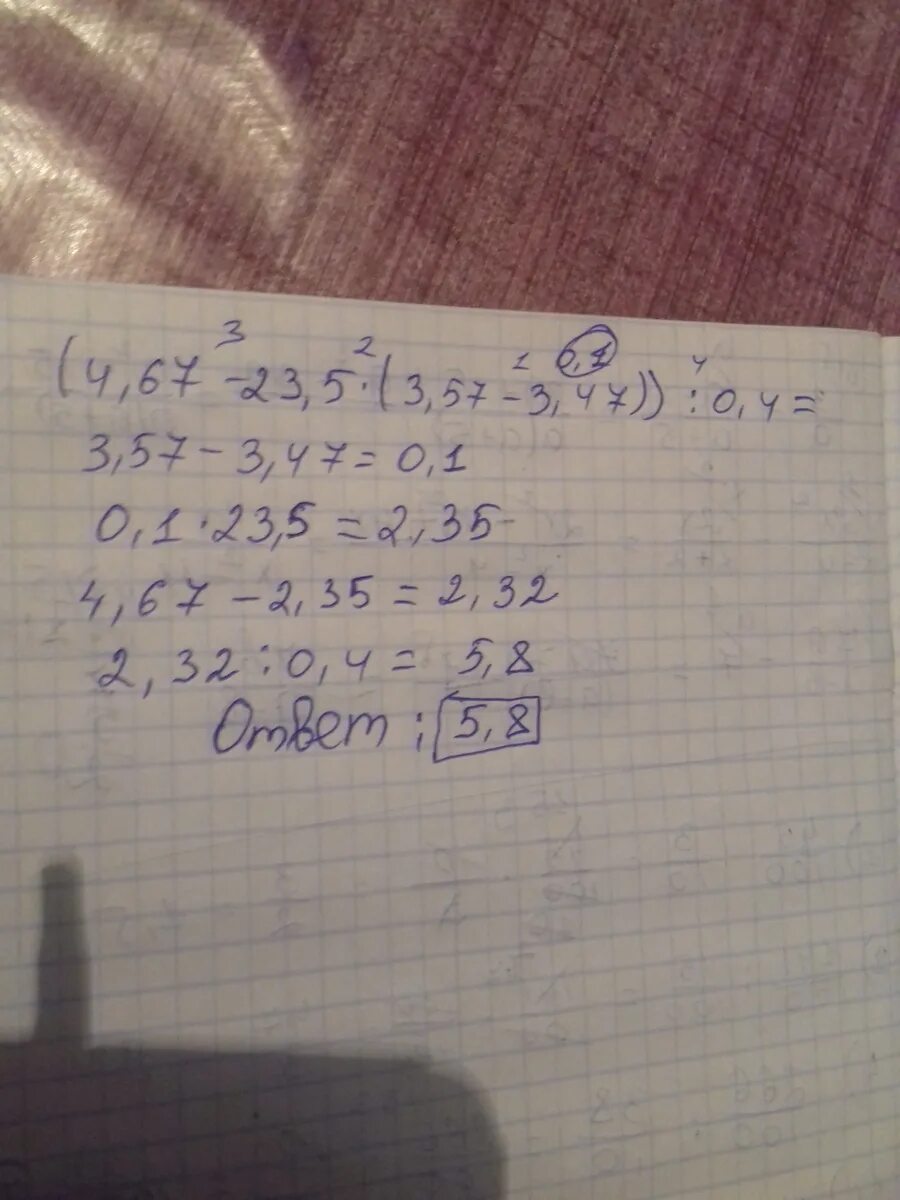 3 2 1 0,1 4
(4,67 - 23,5 · (3,57 - 3,47)) : 0,4 =
3,57 - 3,47 = 0,1
0,1 · 23,5 = 2,35
4,67 - 2,35 = 2,32
2,32 : 0,4 = 5,8
Ответ : 5,8